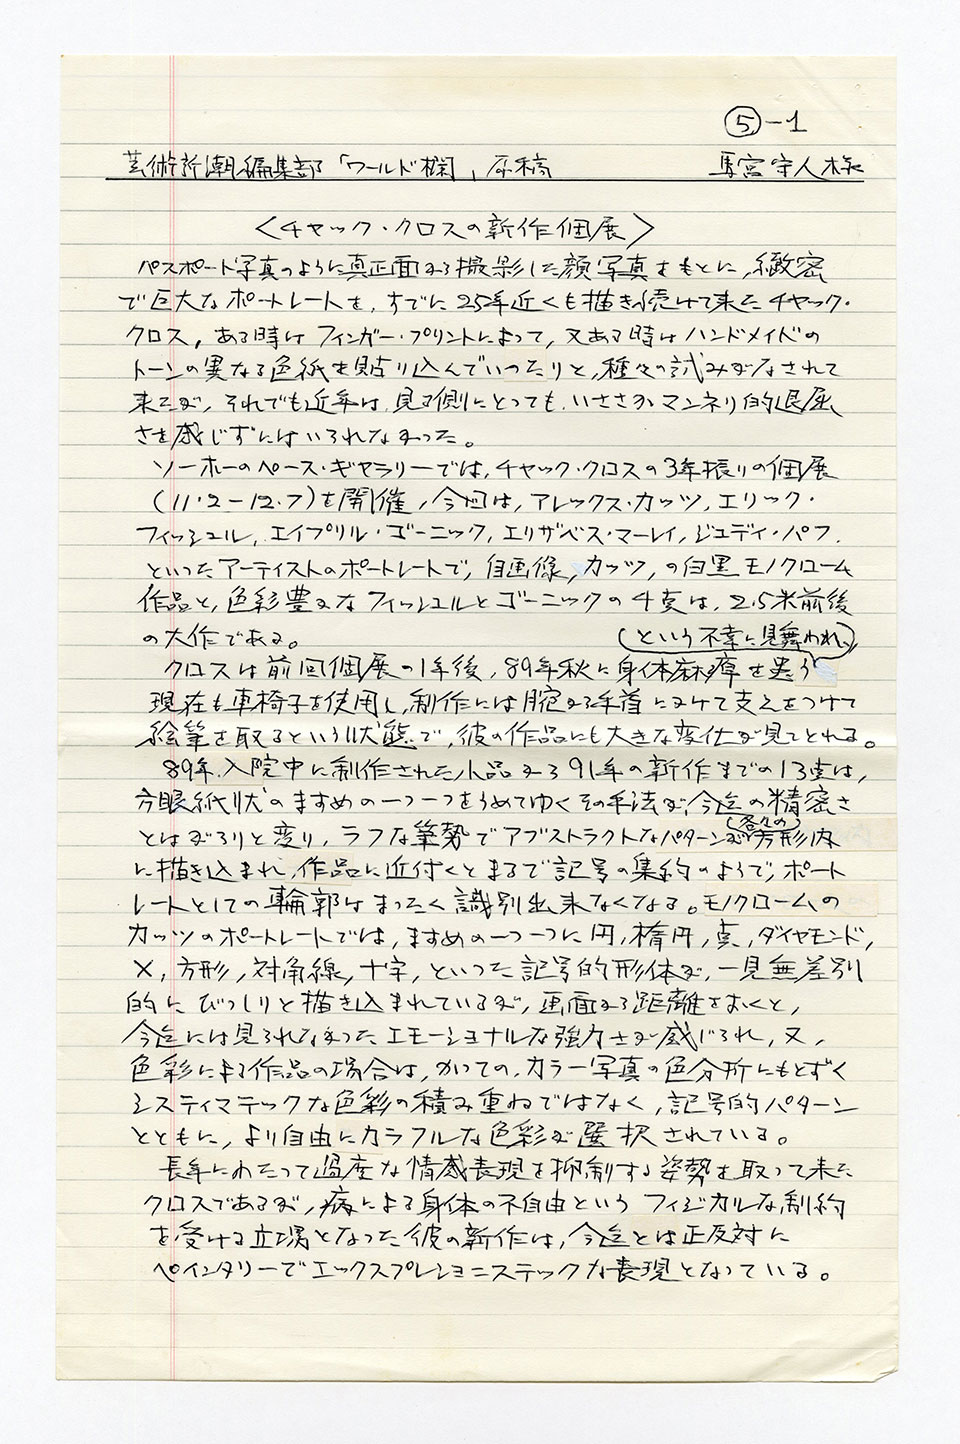 ⑤-1
芸術新潮編集部「ワールド欄」原稿 馬宮守人様
〈チャック・クロスの新作個展〉
パスポート写真のように真正面から撮影した顔写真をもとに,緻密
で巨大なポートレートを,すでに25年近くも描き続けて来たチャック・
クロス,ある時はフィンガー・プリントによって,又ある時はハンドメイドの
トーンの異なる色紙を貼り込んでいったりと,種々の試みがなされて
来たが,それでも近年は,見る側にとっても,いささかマンネリ的退屈
さを感じずにはいられなかった。
ソーホーのペース・ギャラリーでは,チャック・クロスの3年振りの個展
(11・2-12・7)を開催,今回は,アレックス・カッツ,エリック・
フィッシュル,エイプリル・ゴーニック,エリザベス・マーレイ,ジュディ・パフ,
といったアーティストのポートレートで,自画像,カッツ,の白黒モノクローム
作品と,色彩豊かなフィッシュルとゴーニックの4点は,2.5米前後
の大作である。 (という不幸に見舞われ,)
クロスは前回個展の1年後,89年秋に身体麻痺を患う
現在も車椅子を使用し,制作には腕から手首にかけて支えをつけて
絵筆を取るという状態で,彼の作品にも大きな変化が見てとれる。
89年,入院中に制作された小品から91年の新作までの13点は,
方眼紙状のますめの一つ一つをうめてゆくその手法が今迄の精密さ
とはがらりと変り,ラフな筆勢でアブストラクトなパターンが(各々の)方形内
に描き込まれ,作品に近付くとまるで記号の集約のようで,ポート
レートとしての輪郭はまったく識別出来なくなる。モノクロームの
カッツのポートレートでは,ますめの一つ一つに円,楕円,点,ダイヤモンド,
X,方形,対角線,十字,といった記号的形体が,一見無差別
的にびっしりと描き込まれているが,画面から距離をおくと,
今迄には見られなかったエモーショナルな強力さが感じられ,又,
色彩による作品の場合は,かつての,カラー写真の色分析にもとずく
システィマテックな色彩の積み重ねではなく,記号的パターン
とともに,より自由にカラフルな色彩が選択されている。
長年にわたって過度な情感表現を抑制する姿勢を取って来た
クロスであるが,病による身体の不自由というフィジカルな制約
を受ける立場となった彼の新作は,今迄とは正反対に
ペインタリーでエックスプレショニステックな表現となっている。